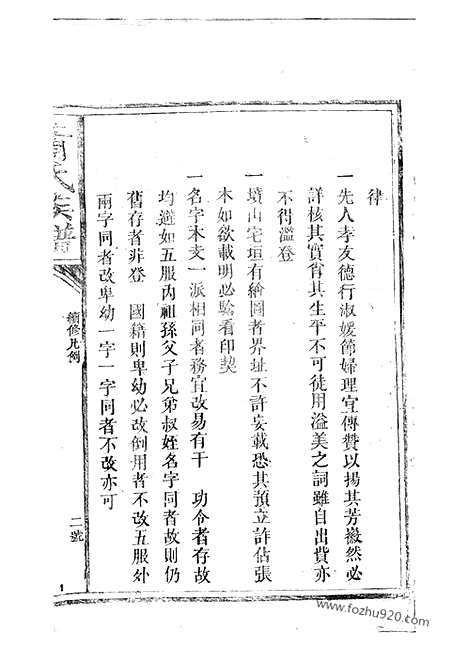 律
一先人孝友德行淑媛節婦理宜傳贊以揚其芳徽然必
詳核其實肖其生平不可徒用溢美之詞雖自出費亦
不得濫登
一墳山宅垣有繪圖者界址不許妄載恐其預立許佔張
本如欲載明必驗看印契
一名字本支一派相同者務宜改易有干 功令者存故
均避如五服內祖孫父子兄弟叔姪名字同者故則仍
舊存者非登 國籍則卑幼必改倒用者不改五服外
兩字同者改卑幼一字一字同者不改亦可
氏族譜
續修凡例
二號
1
www.fozhu920.com